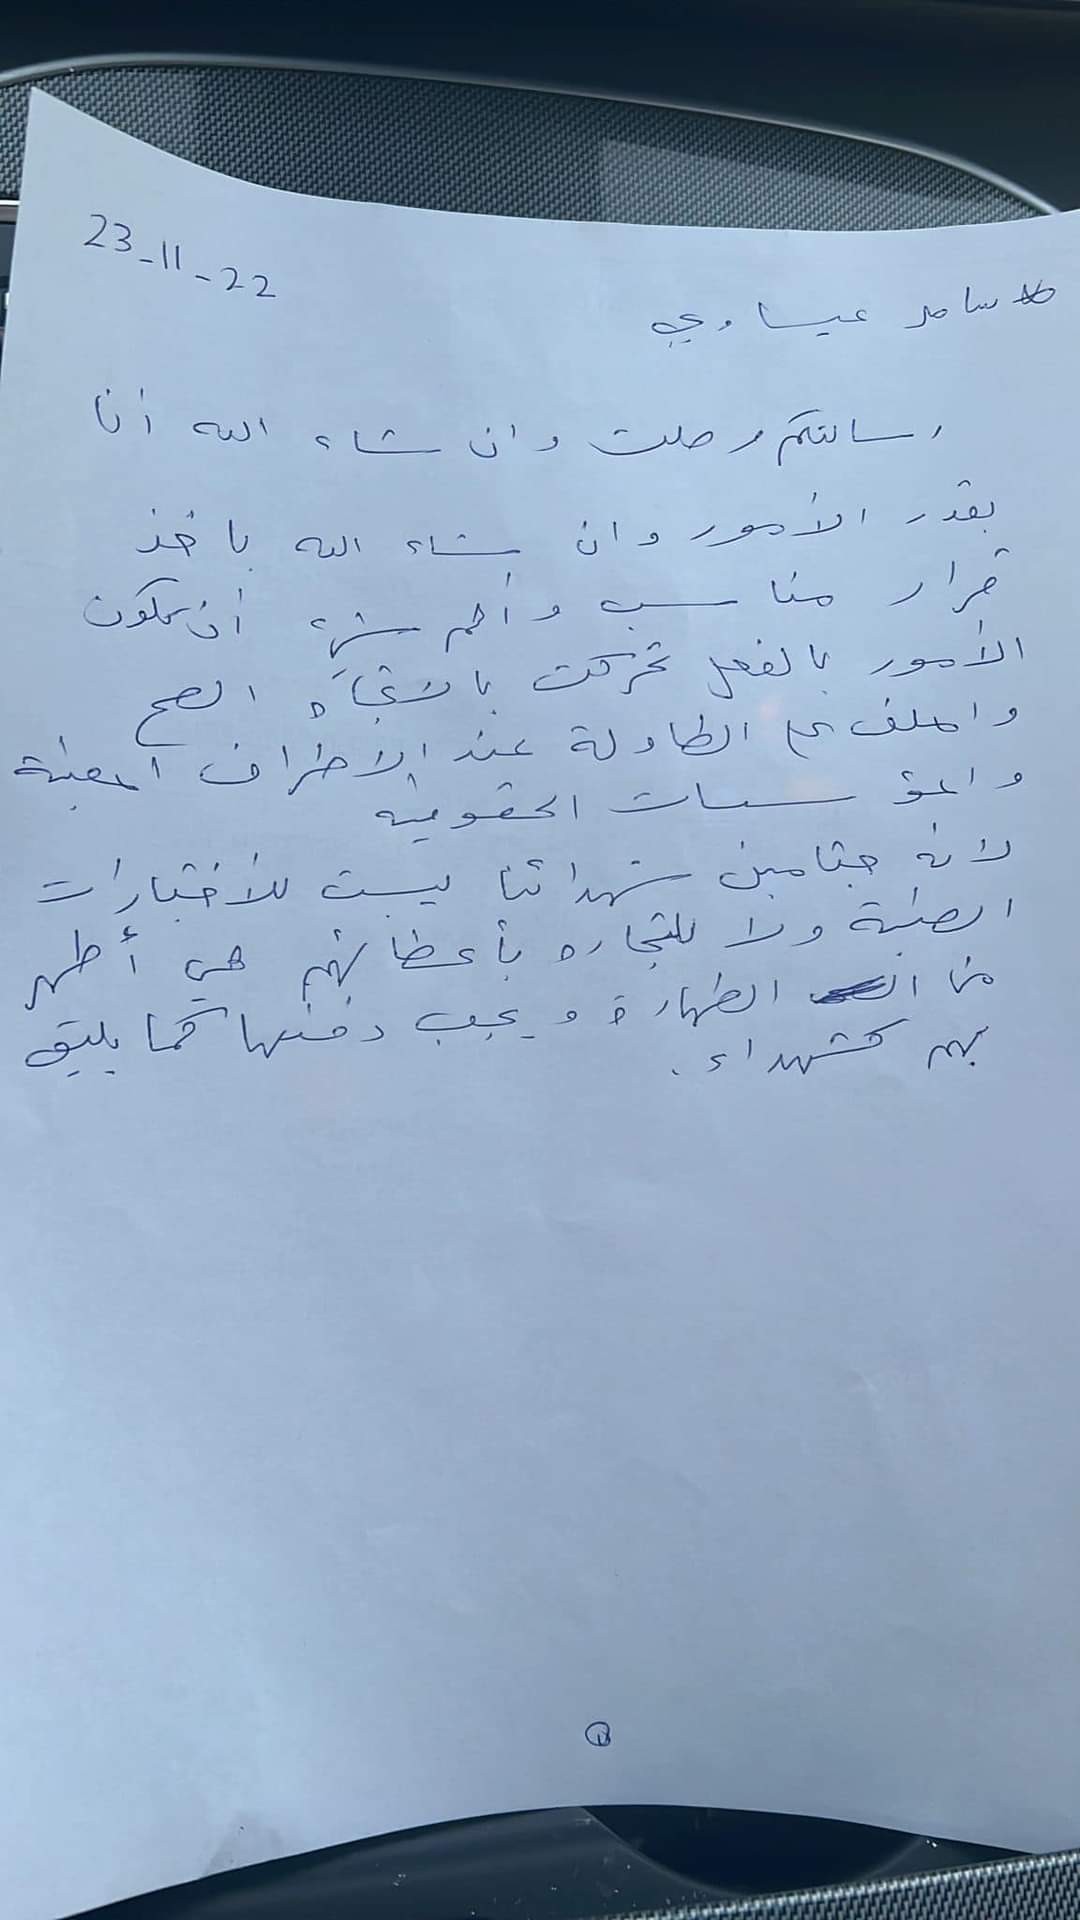 23-11-22
* سامر عيساوي
رسالتكم وصلت وان شاء الله أنا
بقدر الأمور وان شاء الله بأخذ
قرار مناسب وأهم شيء أن تكون
الأمور بالفعل تحركت بالاتجاه الصح
والملف على الطاولة عند الأطراف المعنية
والمؤسسات الحقوقية
لأنه جثامين شهدائنا ليست للأختبارات
الطبية ولا للتجاره بأعضائهم هي أطهر
من الطهارة ويجب دفنها كما يليق
بهم كشهداء.